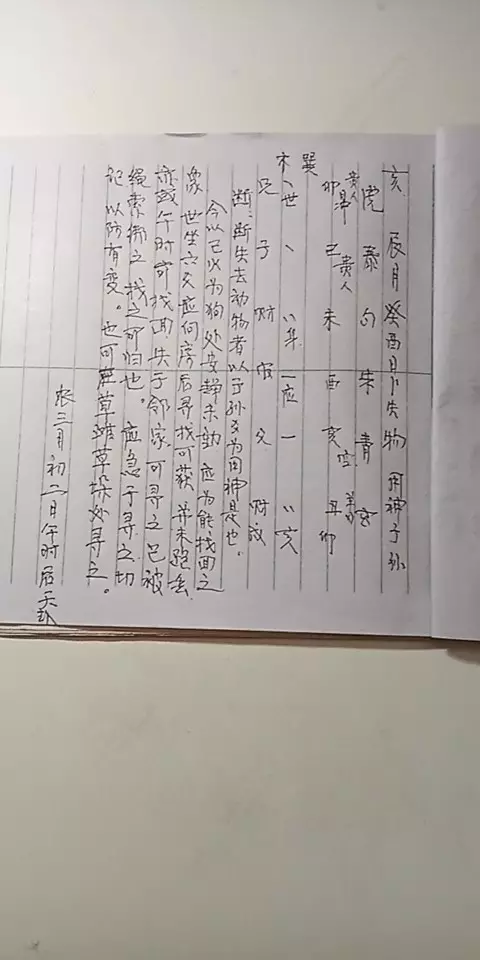 亥 辰月癸酉日卜失物 用神子孙
虎 勾 朱 青 玄
贵人
卯 巳 贵人 未 酉 亥 空 丑 卯
巽
木 世 应
兄 子 财 官 父 财
断:断失去动物者以子孙爻为用神是也。
今以巳火为狗处安静未动 应为能找回之
象 世坐六爻应向房后寻找可获 并未跑丢
亦或午时可找回失于邻家可寻之 已被
绳索绑之 找之可归也。应急于寻之切
记以防有变。也可在草堆草垛处寻之。
农三月初二日午时 后天卦